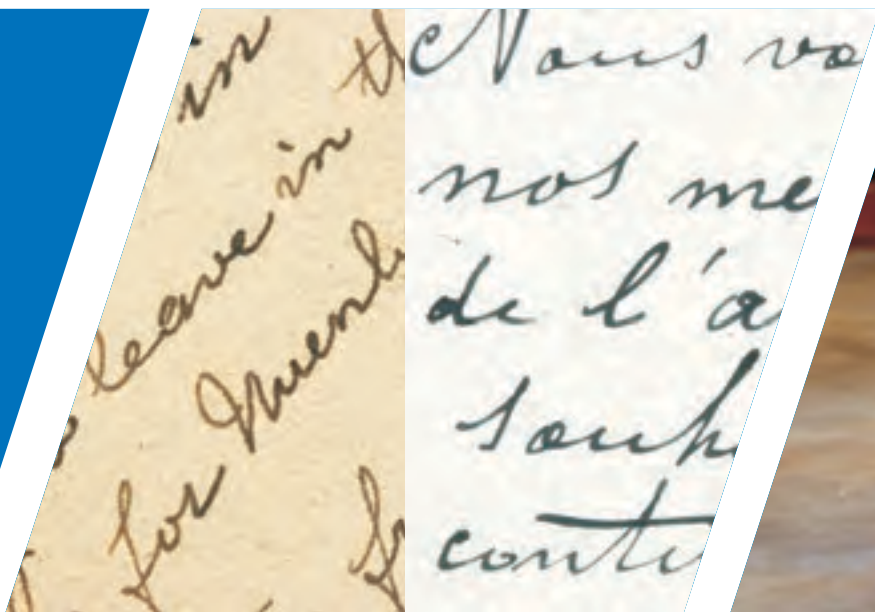 in
th
leave in
for
Nous vo
nos me
de l'a
souh
conti